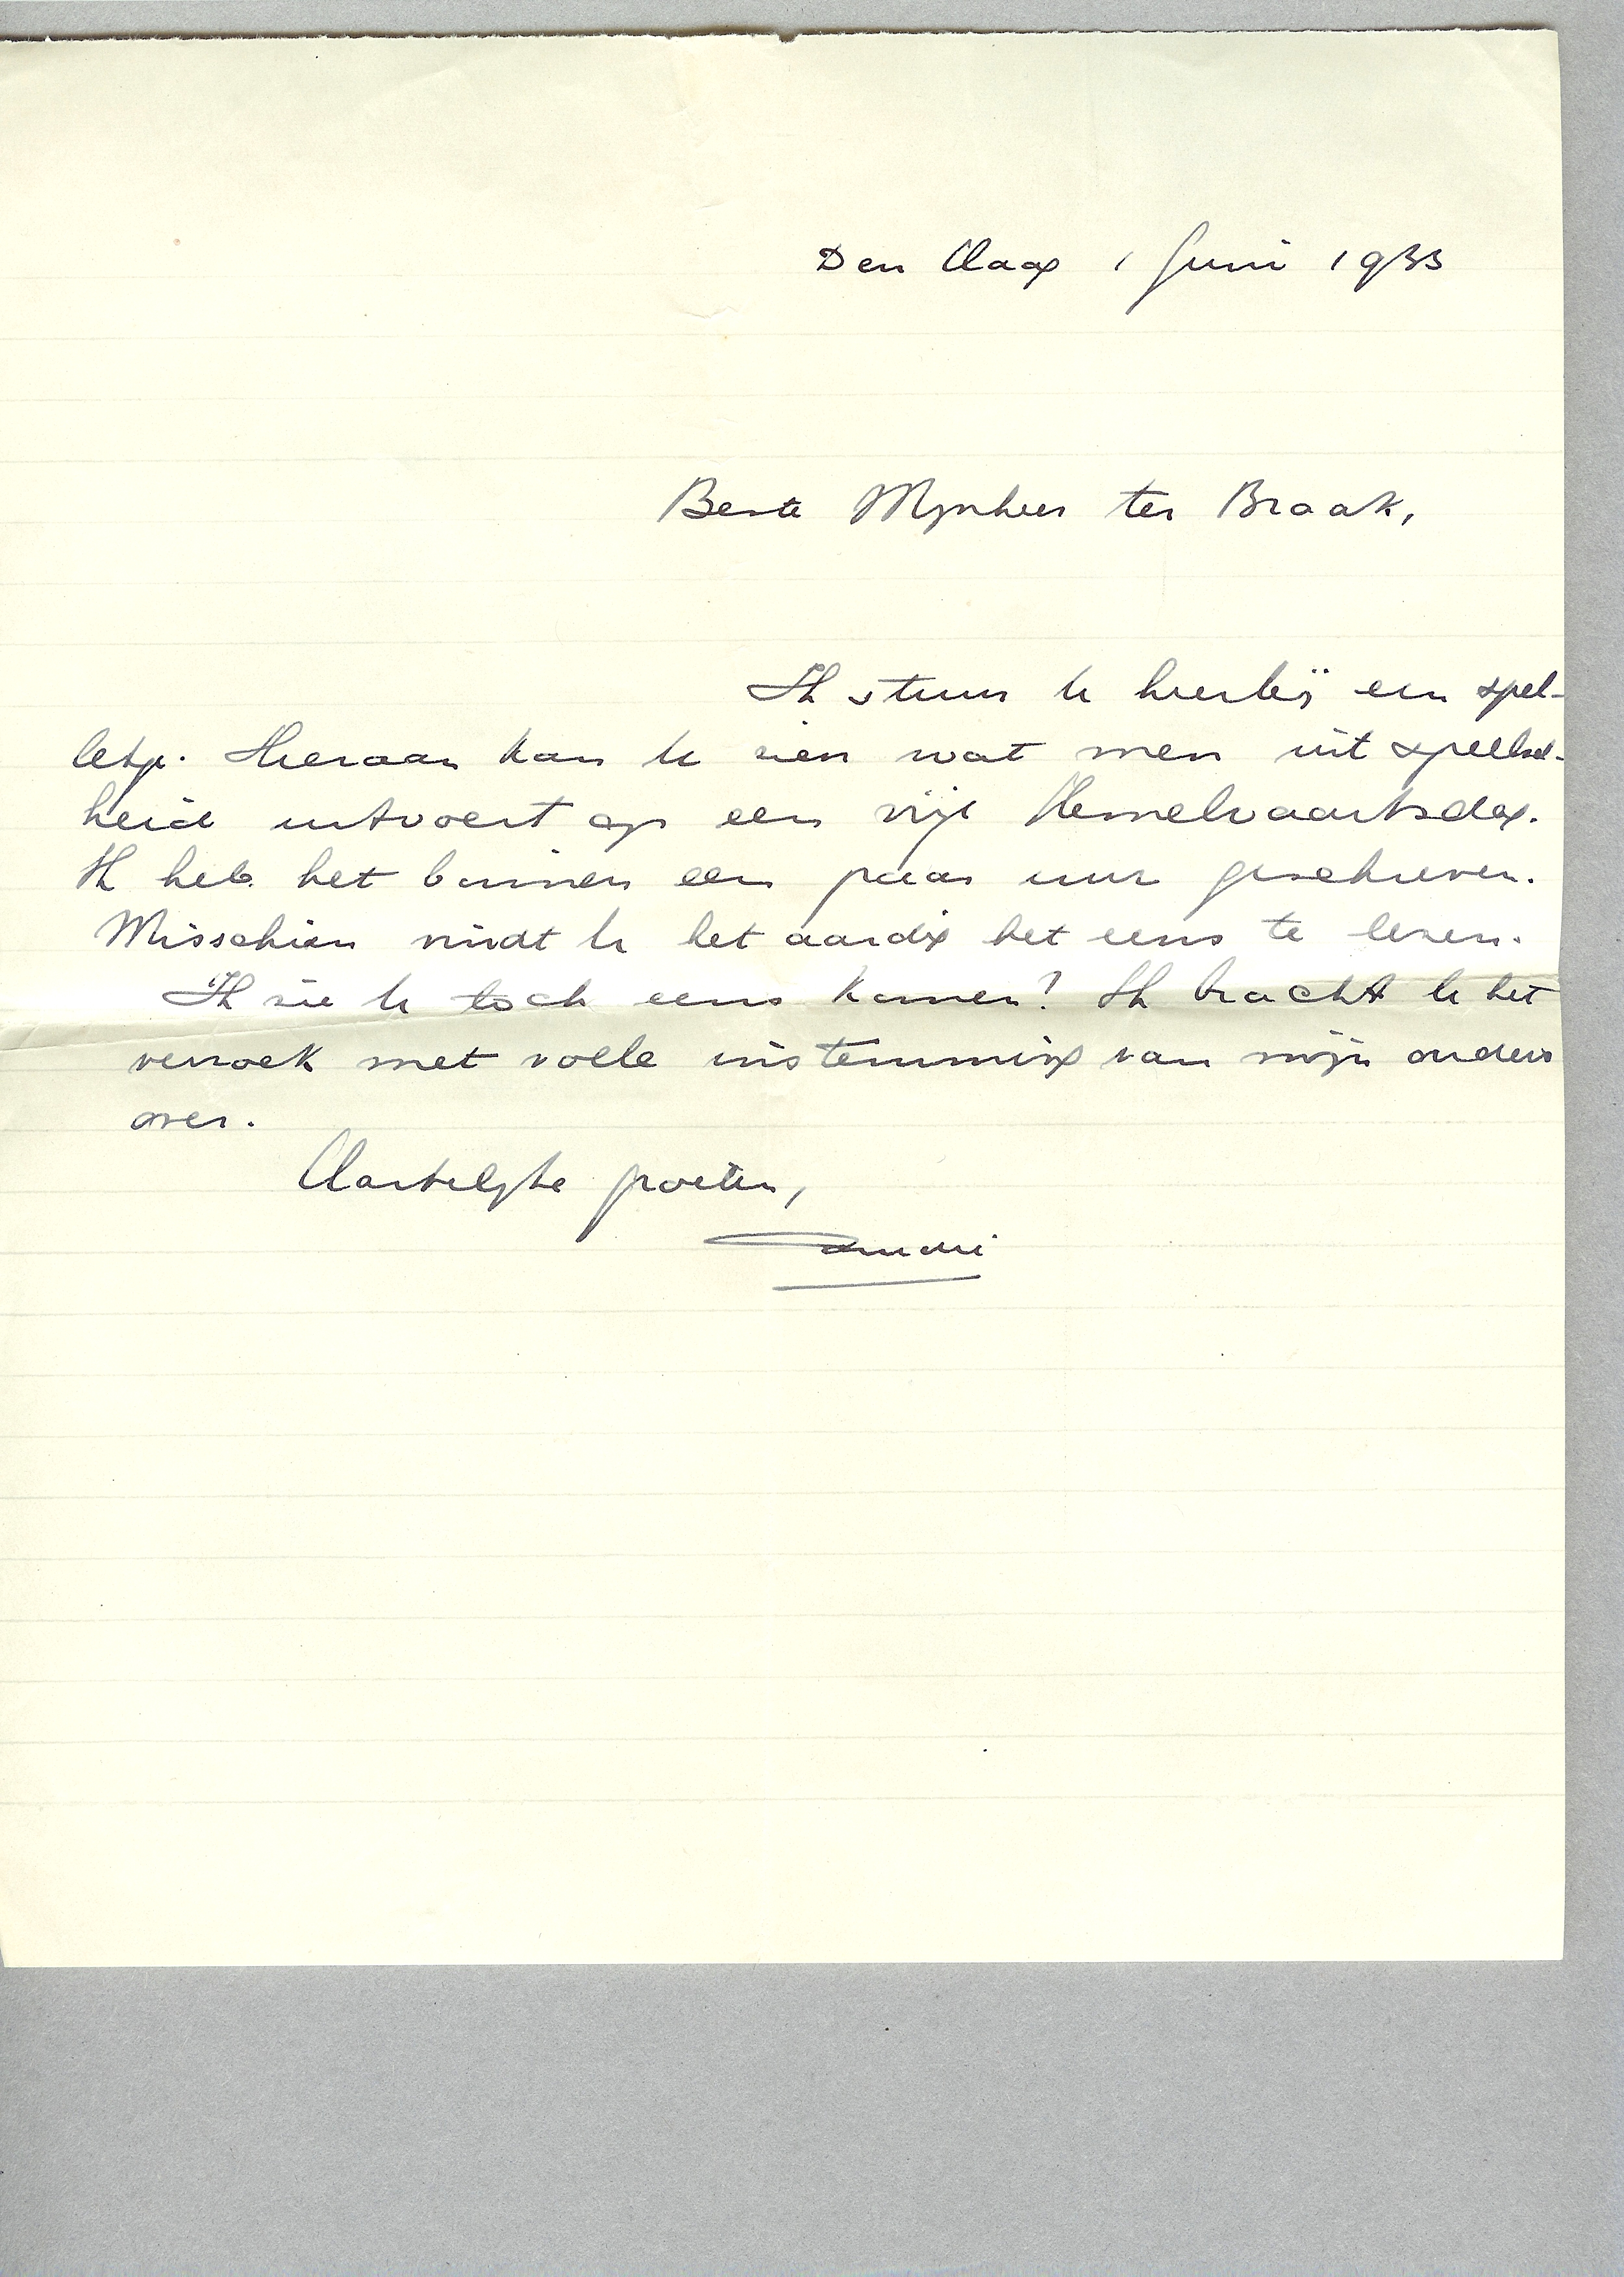 Den Haag 1 Juni 1933
Beste Mijnheer ter Braak,
Ik stuur U hierbij een spel-
letje. Hieraan kan U zien wat men uit speelsch-
heid uitvoert op een vrije Hemelvaartsdag.
Ik heb het binnen een paar uur geschreven.
Misschien vindt U het aardig het eens te lezen.
Ik zie U toch eens komen? Ik bracht U het
verzoek met volle instemming van mijn ouders
over.
Hartelijke groeten,